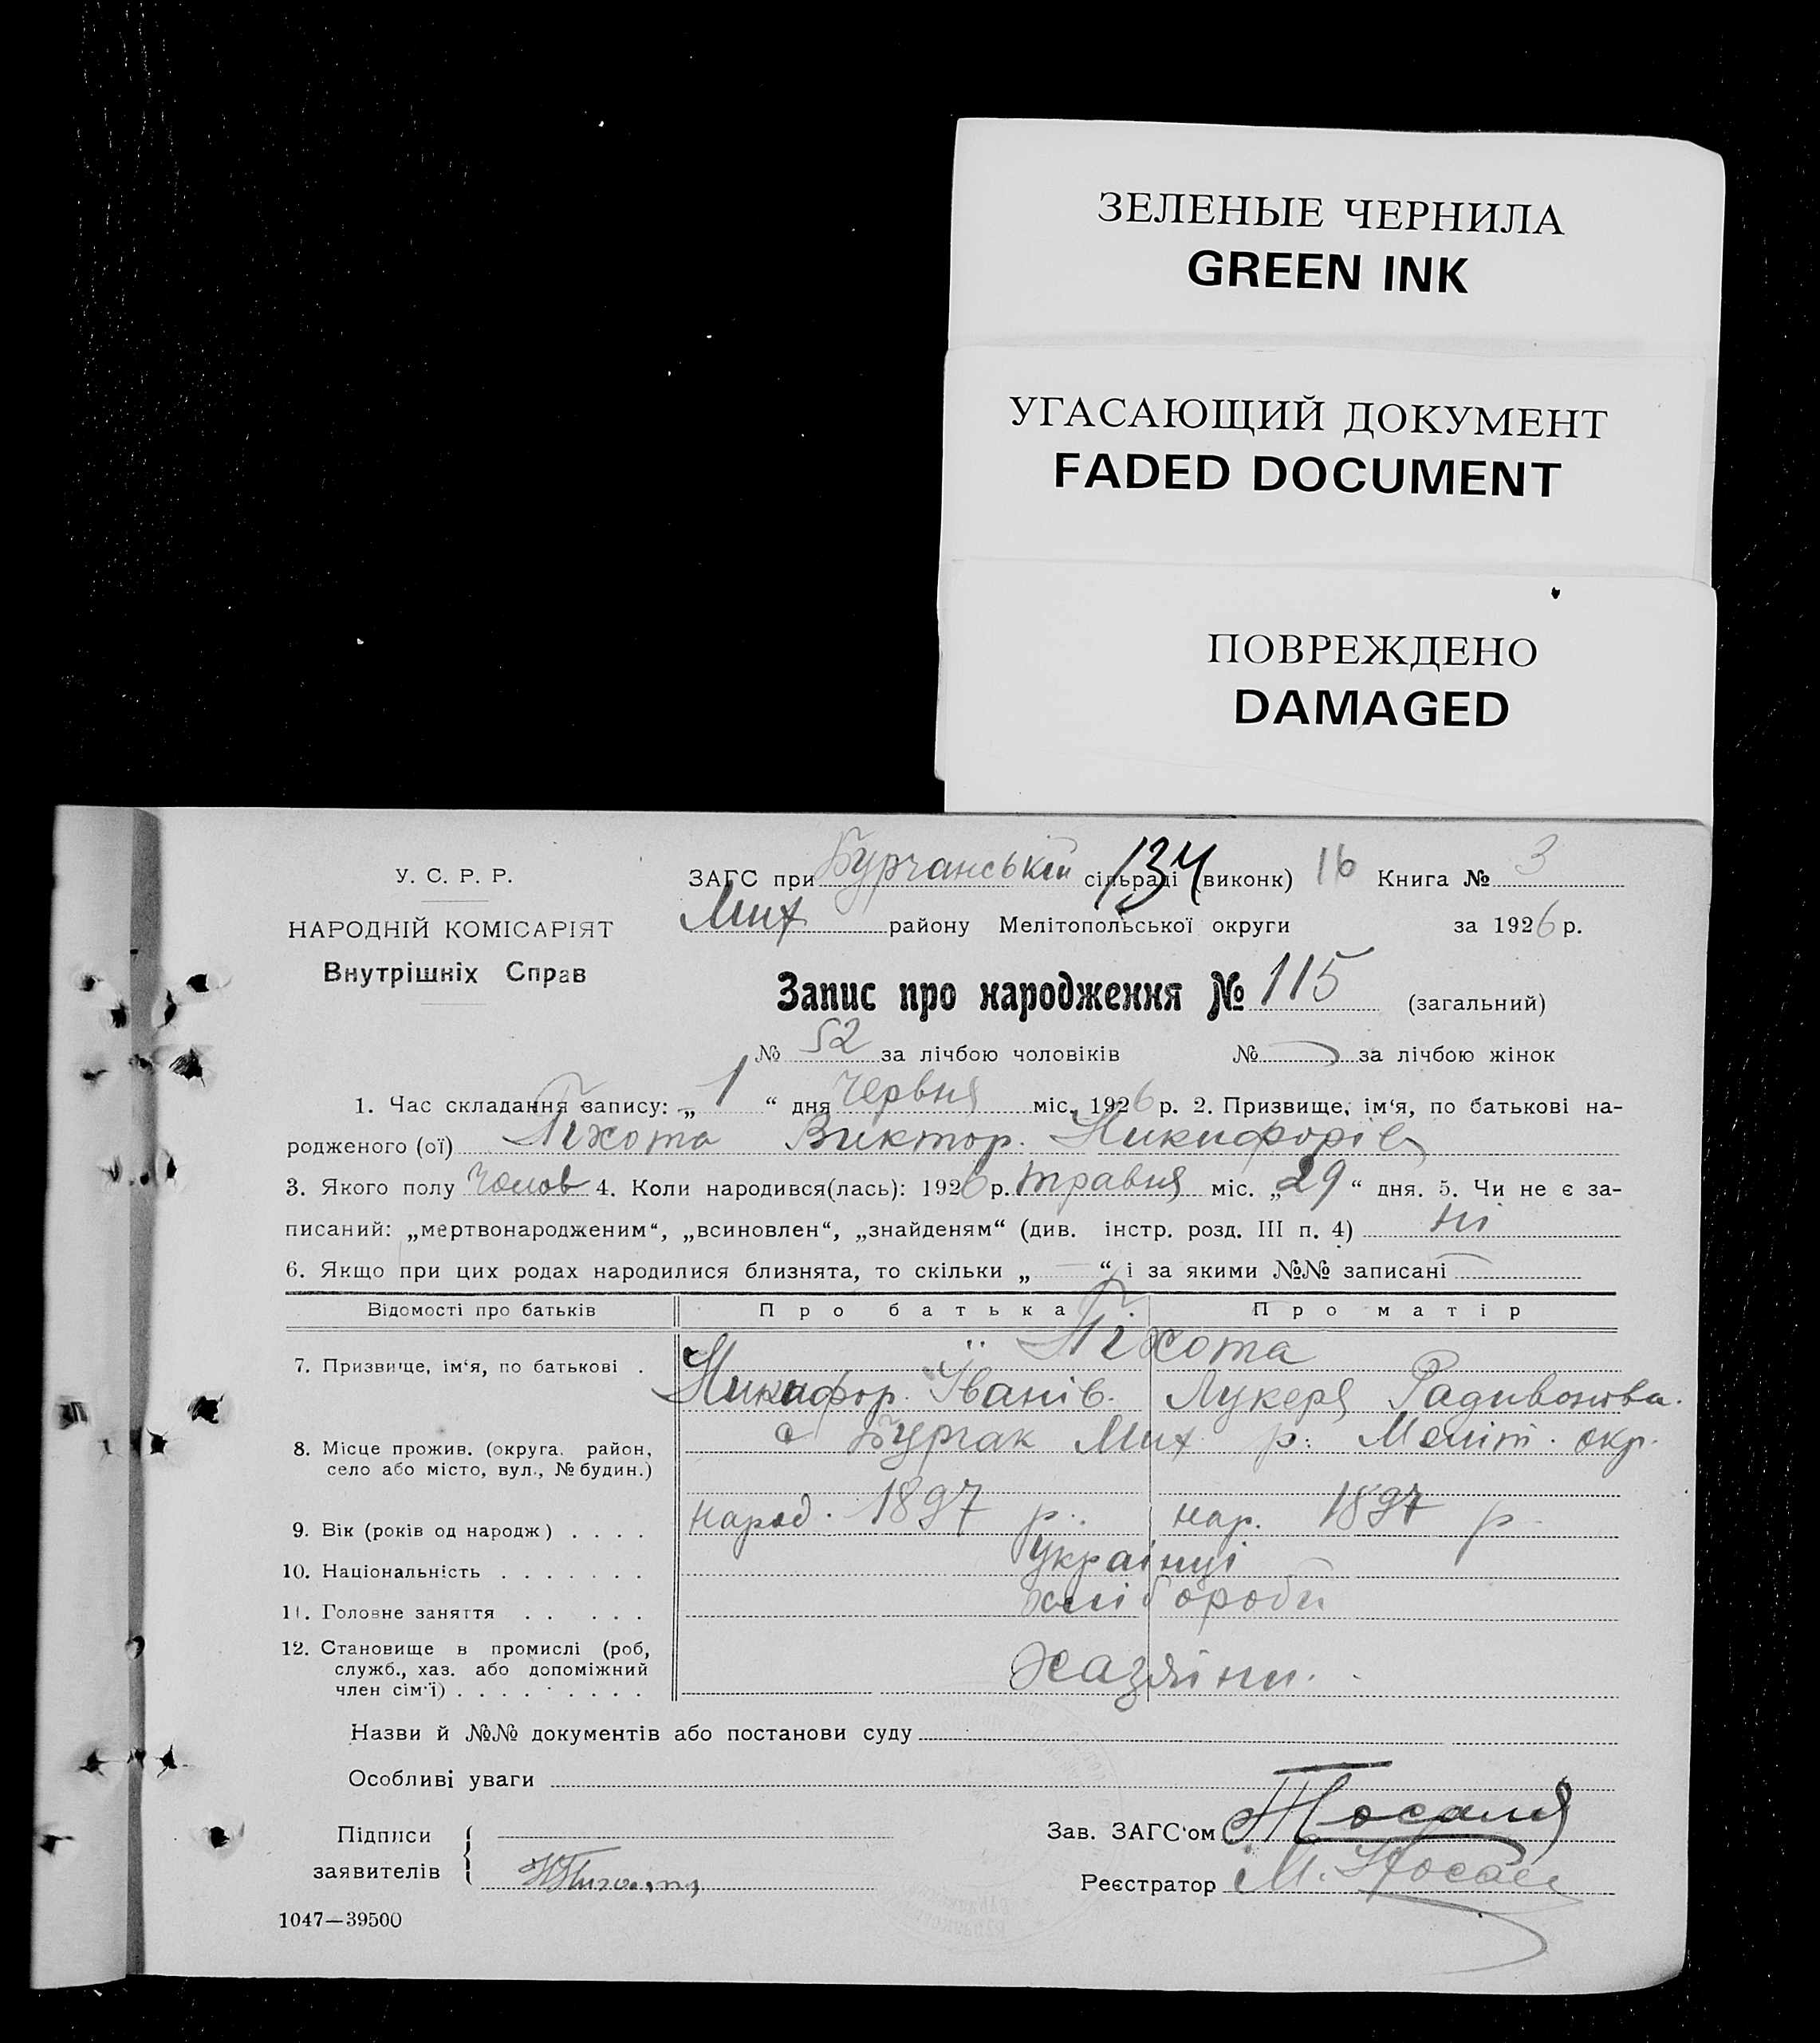 ЗЕЛЕНЫЕ ЧЕРНИЛА
GREEN INK
УГАСАЮЩИЙ ДОКУМЕНТ
FADED DOCUMENT
ПОВРЕЖДЕНО
DAMAGED
У. С. Р. Р.
НАРОДНІЙ КОМІСАРІЯТ
Внутрішніх Справ
ЗАГС при Бурчанській сільраді (виконк) 134 16 Книга № 3
Мих району Мелітопольської округи за 1926 р.
Запис про народження № 115 (загальний)
№ 52 за лічбою чоловіків № за лічбою жінок
1. Час складання запису: „ 1 “ дня Червня міс. 1926 р. 2. Призвище, ім‘я, по батькові на-
родженого (ої) Піхота Виктор. Никифорів
3. Якого полу Чолов 4. Коли народився(лась): 1926 р. травня міс. „29“ дня. 5. Чи не є за-
писаний: „мертвонародженим“, „всиновлен“, „знайденям“ (див. інстр. розд. III п. 4) ні
6. Якщо при цих родах народилися близнята, то скільки „ — “ і за якими №№ записані —
Відомості про батьків Про батька Про матір
Піхота
7. Призвище, ім‘я, по батькові . Никифор. Іванів. Лукеря Радивонова.
с Бурчак Мих р: Меліт. окр.
8. Місце прожив. (округа. район,
село або місто, вул., № будин.)
9. Вік (років од народж) . . . . народ. 1897 р. нар. 1897 р
10. Національність . . . . . . . українці
11. Головне заняття . . . . . хлібороби
12. Становище в промислі (роб,
служб., хаз. або допоміжний
член сім‘ї) . . . . . . . . . Хазяіни.
Назви й №№ документів або постанови суду
Особливі уваги
Підписи
заявителів
Зав. ЗАГС‘ом
Реєстратор М. Носаль
1047—39500